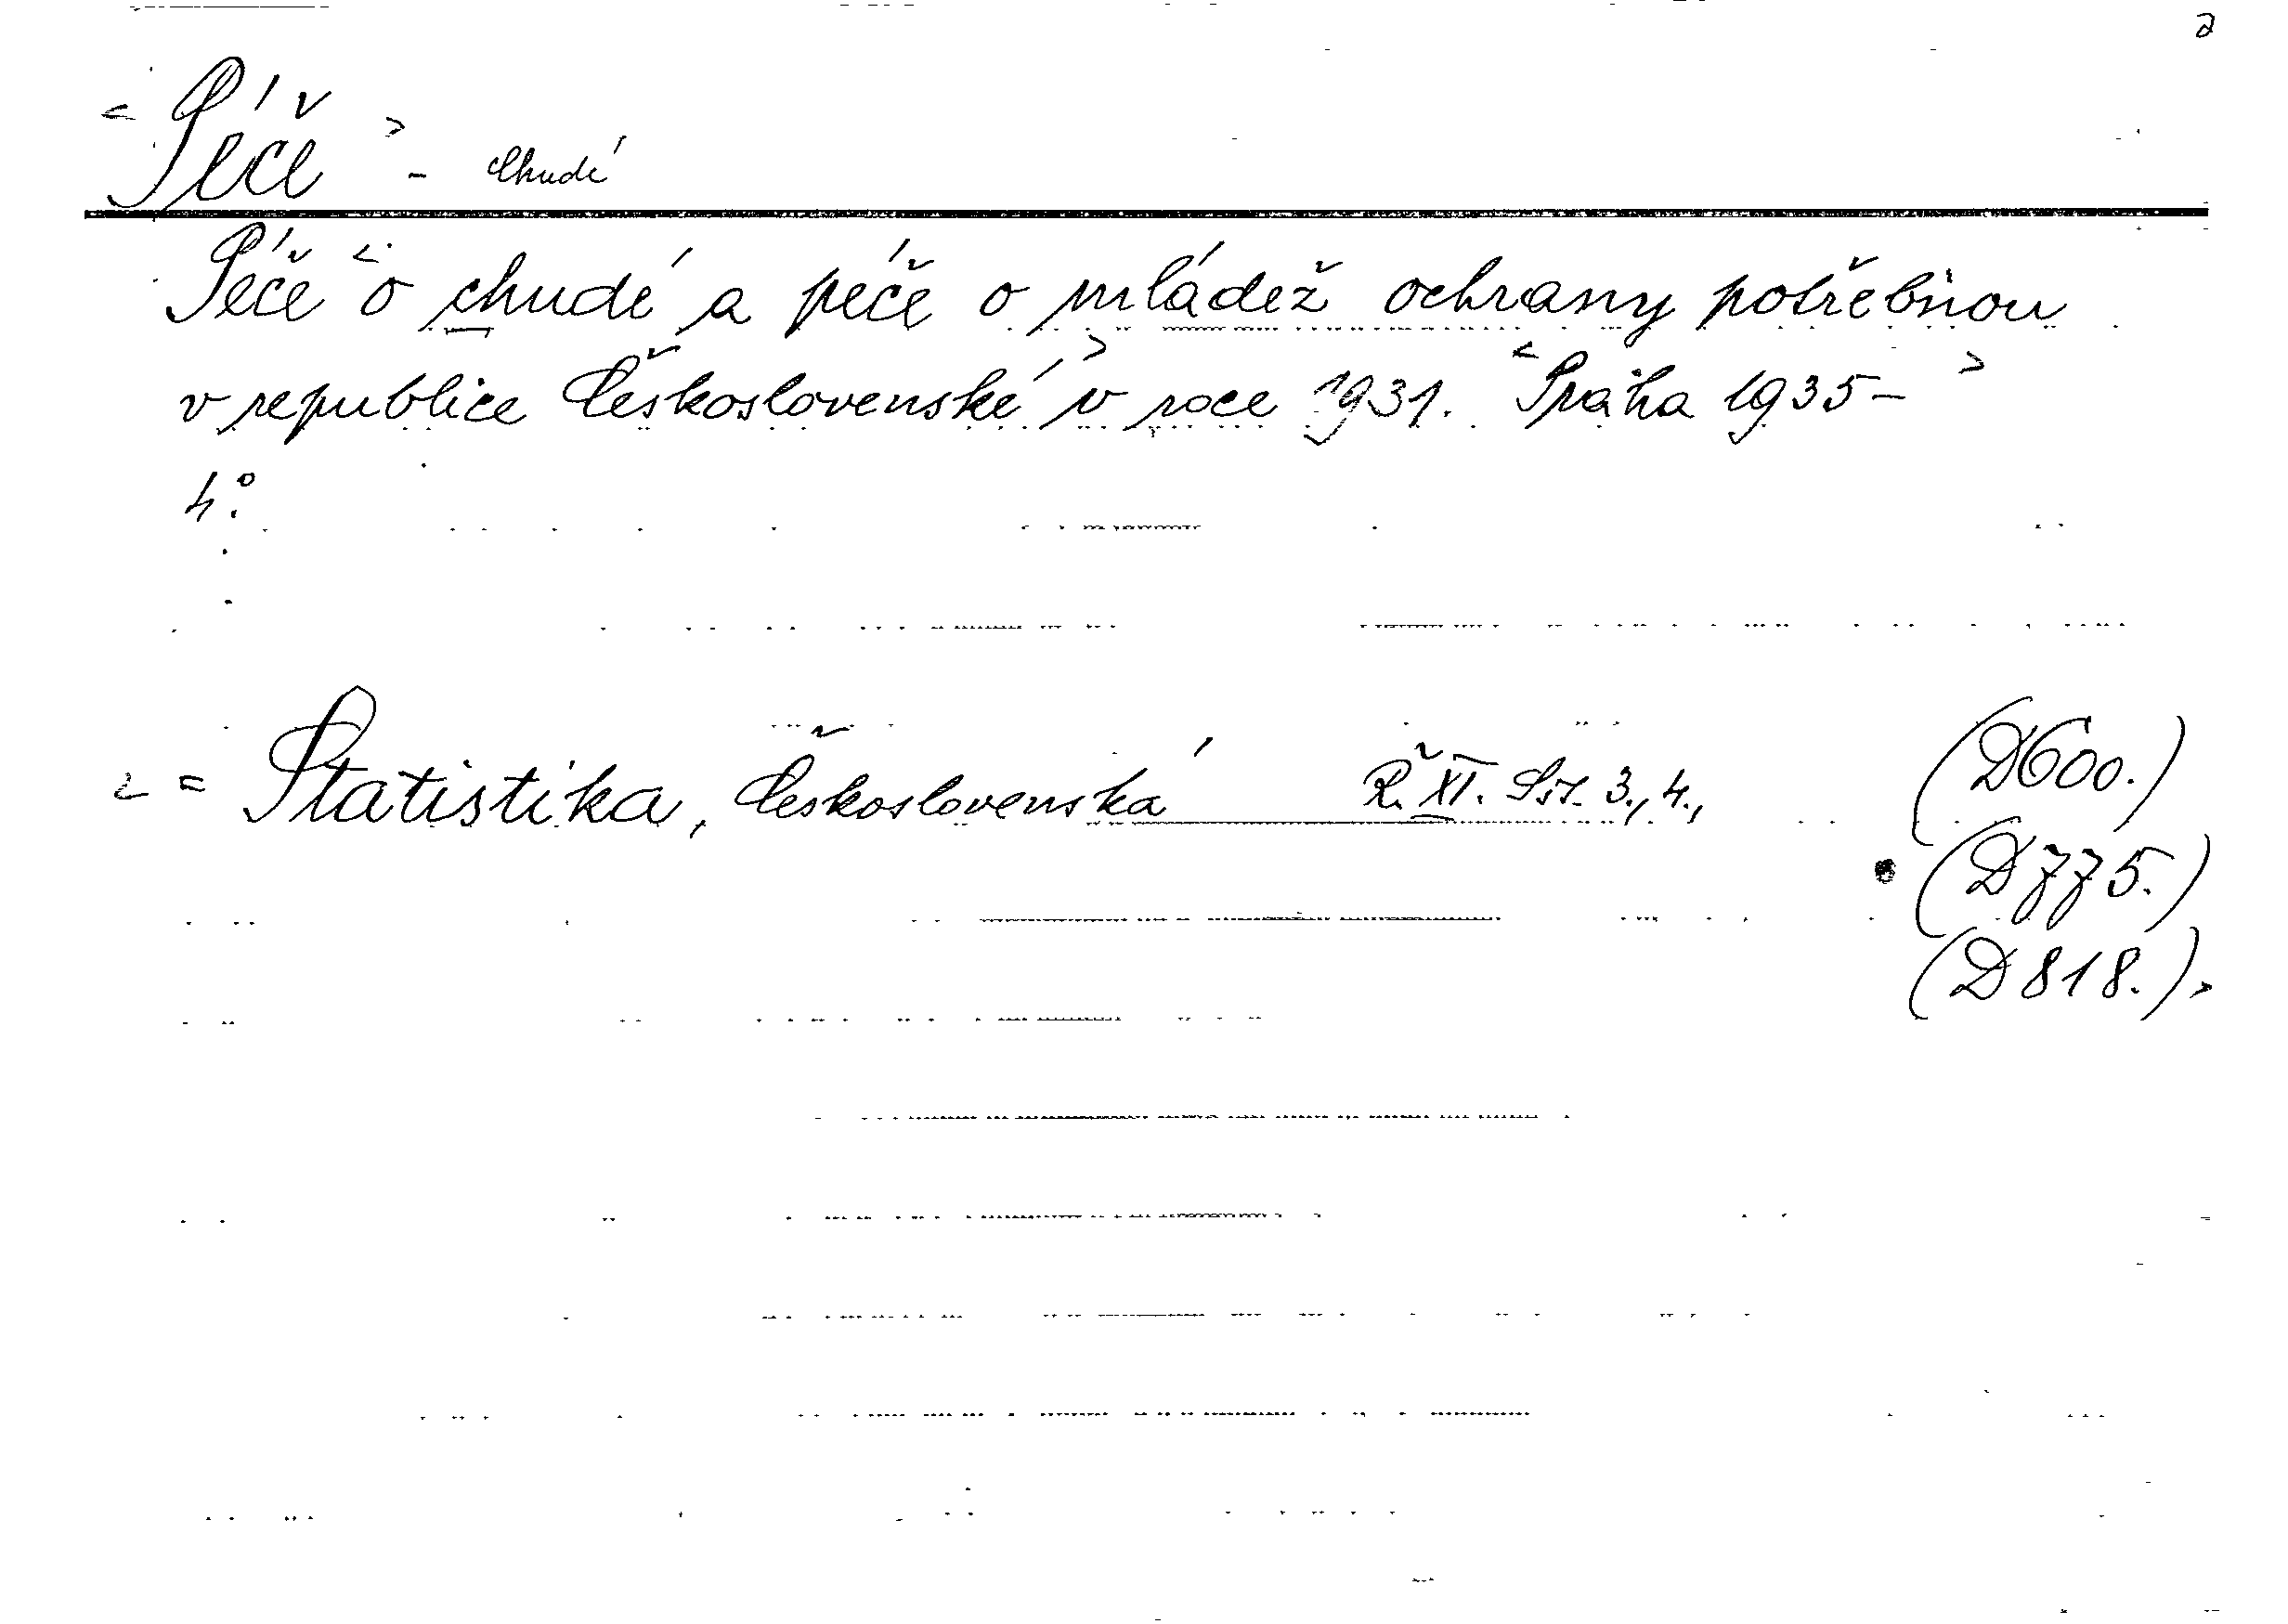 2
< Péče > - chudé
Péče < o chudé a péče o mládež ochrany potřebnou
v republice Československé > v roce 1931. < Praha 1935- >
4°.
< = Statistika, Československá Ř. XI. Seš. 3., 4., (D600.)
(D775.)
(D818.) >